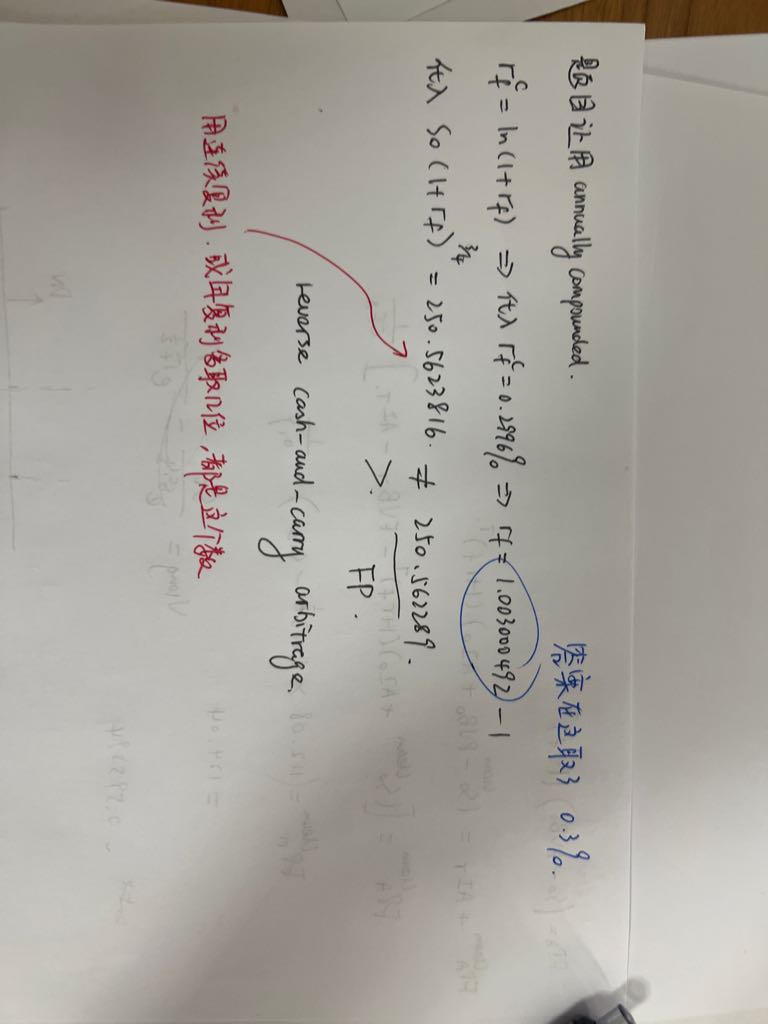 题目让用 annually compounded.
答案在这取了 0.3%.
r_f^c = ln(1+r_f) ⇒ 代入 r_f^c = 0.2996% ⇒ r_f = 1.003000492 - 1
代入 S0(1+r_f)^3/4 = 250.5623816. ≠ 250.562289.
>. FP.
reverse cash-and-carry arbitrage.
用连续复利.或年复利多取几位,都是这个数